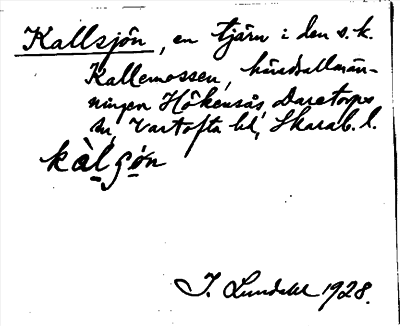 Kallsjön, en tjärn i den s.k.
Kallemossen, häradsallmän-
ningen Hökensås, Daretorps
sn, Vartofta hd, Skarab. l.
kàlʂøn
J. Lundahl 1928.